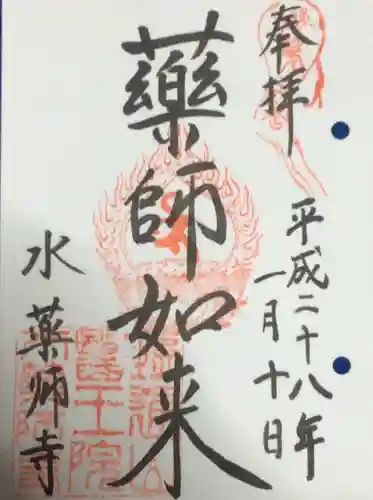 奉拝
平成二十八年
一月十日
藥師如来
水薬師寺